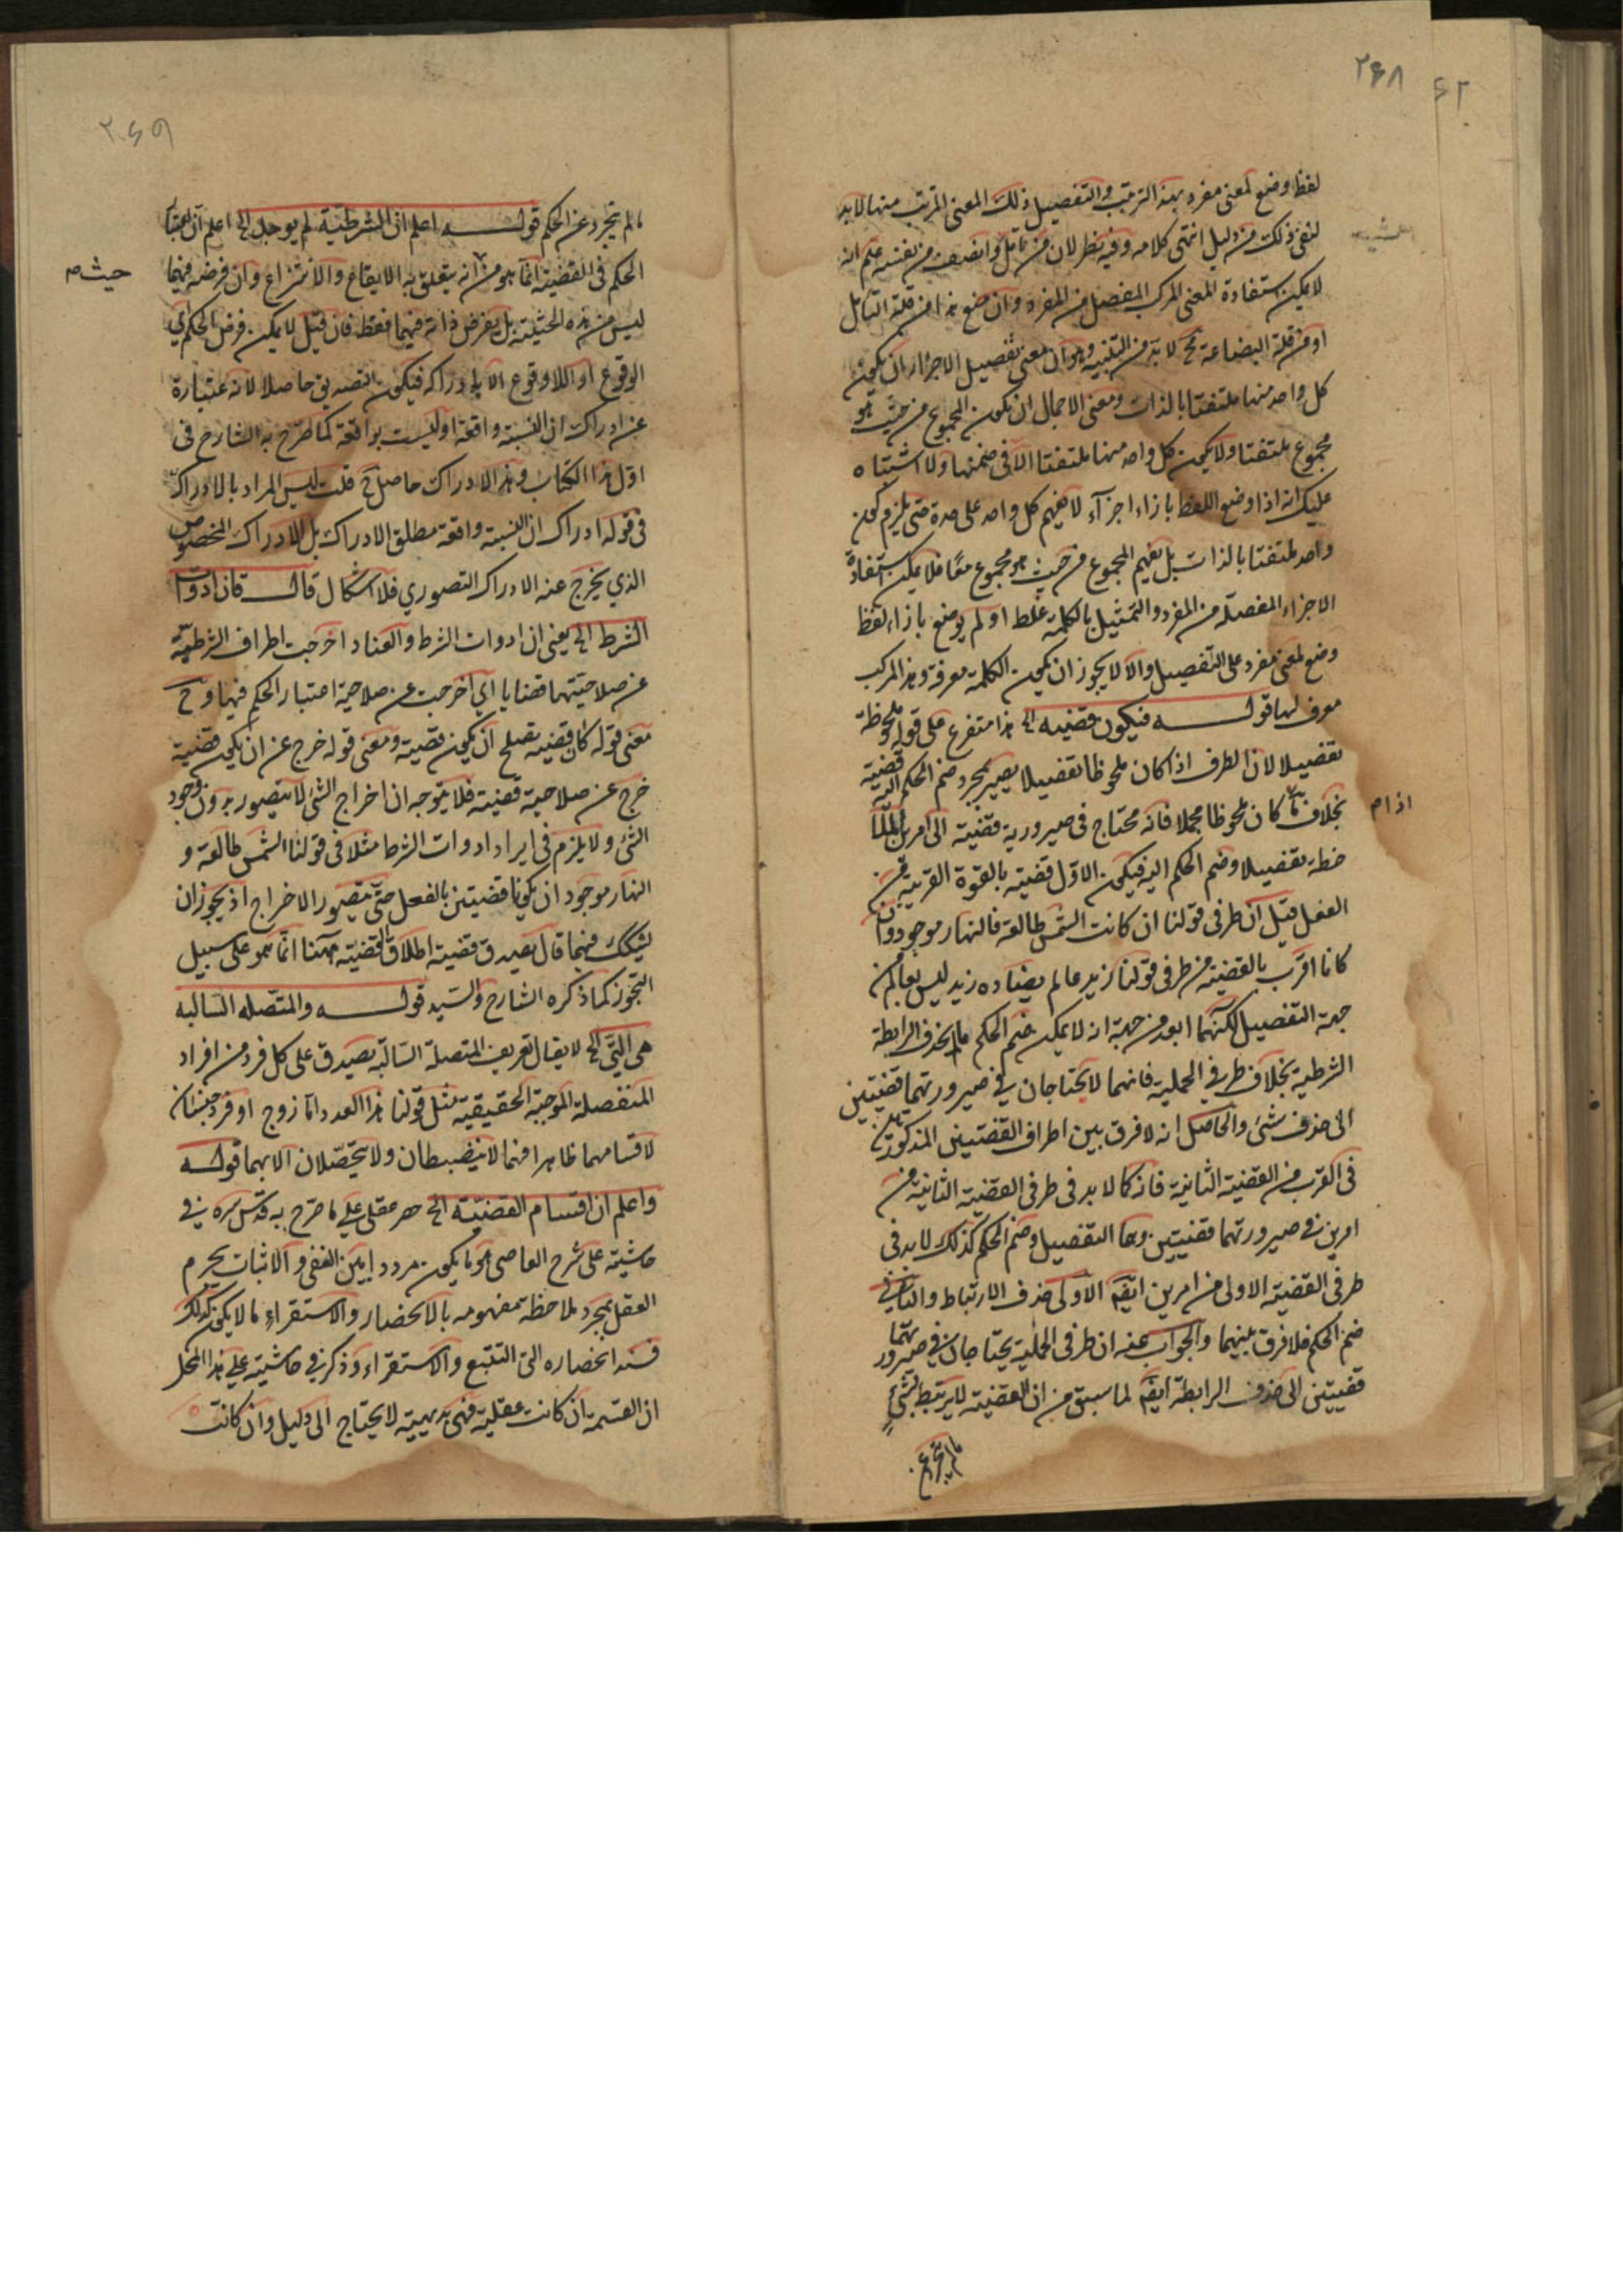 ٢٦٨
لفظ وضع لمعنى مفرد بهذا الترتيب والتفصيل ذلك المعنى المرتب منها لا بد
لنفى ذلك من دليل انتهى كلامه وفيه نظر لان من تأمل وانصف من نفسه علم انه
لا يمكن استفادة المعنى المركب المفصل من المفرد وان منع هذا من قلة التأمل
او من قلة البضاعة فح لا بد من التنبيه وهو ان معنى تفصيل الاجزاء ان يكون
كل واحد منها ملتفتا بالذات ومعنى الاجمال ان يكون المجموع من حيث هو
مجموع ملتفتا ولا يكون كل واحد منها ملتفتا الا فى ضمنها ولا اشتباه
عليك انه اذا وضع اللفظ بازاء اجزآء لا يفهم كل واحد على حدة حتى يلزم كون
واحد ملتفتا بالذات بل يفهم المجموع من حيث هو مجموع معًا فلا يمكن استفادة
الاجزاء المفصلة من المفرد والتمثيل بالكلمة غلط اذ لم يوضع بازاء لفظ
وضع لمعنى مفرد على التفصيل والا لا يجوز ان يكون الكلمة معرفة وهذا المركب
معرف لها قولــه فيكون قضيه الخ هذا متفرع على قوله ملحوظة
تفصيلا لان الطرف اذا كان ملحوظا تفصيلا يصير بمجرد ضم الحكم اليه قضية
بخلاف ما كان ملحوظا مجملا فانه محتاج فى صيرورية قضية الى امرين الملا
اذا م
حظة تفصيلا وضم الحكم اليه فيكون الاول قضية بالقوة القريبة من
الفعل قيل ان طرفى قولنا ان كانت الشمس طالعة فالنهار موجود وان
كانا اقرب بالقضية من طرفى قولنا زيد عالم يضاده زيد ليس بعالم من
جهة التفصيل لكنهما ابعد من جهة انه لا يمكن ضم الحكم ما لم يحذف الرابطة
الشرطية بخلاف طرفي الحملية فانهما لا يحتاجان في صيرورتهما قضيتين
الى حذف شئ والحاصل انه لا فرق بين اطراف القضيتين المذكورتين
فى القرب من القضية الثانية فانه كما لا بد فى طرفى القضية الثانية من
امرين في صيرورتهما قضيتين وهما التفصيل وضم الحكم كذلك لا بد فى
طرفى القضية الاولى من امرين ايضًا الاولى حذف الارتباط والثانى
ضم الحكم فلا فرق بينهما والجواب عنه ان طرفى الحملية يحتاجان في صيرورتهما
قضيتين الى حذف الرابطة ايضًا لما سبق من ان القضية لا يرتبط بشئ
ما لم يتجرد عن
٢٦٩
ما لم يتجرد عن الحكم قولــه اعلم ان الشرطية لم يوجد الخ اعلم ان اعتبار
الحكم فى القضية انما هو من انه يتعلق به الايقاع والانتزاع وان فرضه فيهما
حيث م
ليس من هذه الحيثية بل يفرض ذاته فيهما فقط فان قيل لا يمكن فرض الحكم اي
الوقوع او اللاوقوع الا بادراكه فيكون التصديق حاصلا لانه عبارة
عن ادراك ان النسبة واقعة او ليست بواقعة كما صرح به الشارح فى
اول هذا الكتاب وهذا الادراك حاصل ح قلت ليس المراد بالادراك
فى قوله ادراك ان النسبة واقعة مطلق الادراك بل الادراك المخصوص
الذي يخرج عنه الادراك التصوري فلا اشكال قالــ فان ادوات
الشرط الخ يعنى ان ادوات الشرط والعناد اخرجت اطراف الشرطية
عن صلاحيتها قضايا اي اخرجت عن صلاحية اعتبار الحكم فيها وح
معنى قوله كان قضية يصلح ان يكون قضية ومعنى قوله خرج عن ان يكون قضية
خرج عن صلاحية قضية فلا يتوجه ان اخراج الشئ لا يتصور بدون وجود
الشئ ولا يلزم فى ايراد ادوات الشرط مثلا فى قولنا الشمس طالعة و
النهار موجود ان يكونا قضيتين بالفعل حتى يتصور الاخراج اذ يجوز ان
يشكك فيهما قال بعيد ق قضية اطلاق القضية ههنا انما هو على سبيل
التجوز كما ذكره الشارح والسيد قولــه والمتصله السالبه
هى التى الخ لا يقال تعريف المتصلة السالبة يصدق على كل فرد من افراد
المنفصلة الموجبة الحقيقية مثل قولنا هذا العدد اما زوج او فرد جنسان
لاقسامهما ظاهرا فهما لا ينضبطان ولا يتحصلان الا بهما قولــه
واعلم ان اقسام القضية الخ حصر عقلى على ما صرح به قدس سره في
حاشيته على شرح القاضى هو ما يكون مرددا بين النفى والاثبات يجزم
العقل بمجرد ملاحظة مفهومه بالانحصار والاستقراء ما لا يكون كذلك
فسند انحصاره التتبع والاستقراء وذكر في حاشيته على هذا المحل
ان القسمة ان كانت عقلية فهى بديهية لا يحتاج الى دليل وان كانت